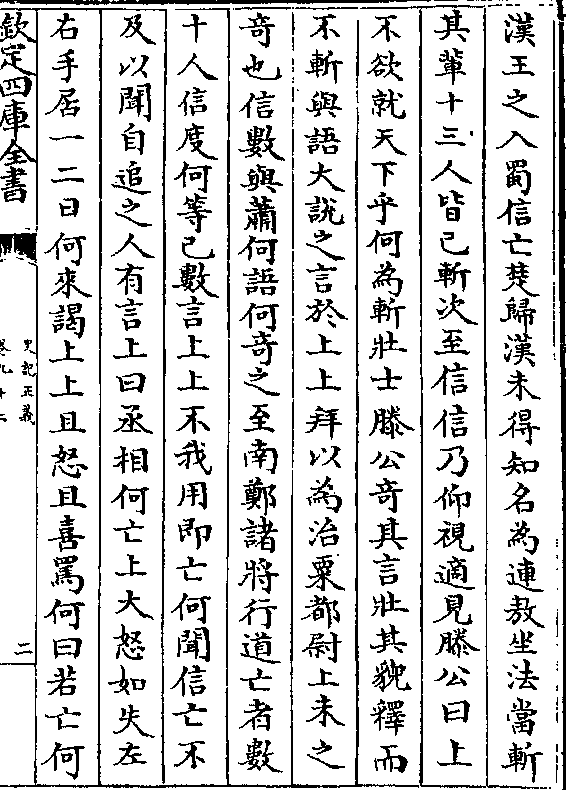 漢王之入蜀信亡楚歸漢未得知名為連敖坐法當斬
其輩十三人皆已斬次至信信乃仰視適見滕公曰上
不欲就天下乎何為斬壯士滕公奇其言壯其貌釋而
不斬與語大說之言於上上拜以為治粟都尉上未之
奇也信數與蕭何語何奇之至南鄭諸將行道亡者數
十人信度何等已數言上上不我用即亡何聞信亡不
及以聞自追之人有言上曰丞相何亡上大怒如失左
右手居一二日何來謁上上且怒且喜罵何曰若亡何
欽定四庫全書
史記正義
卷九十二
二